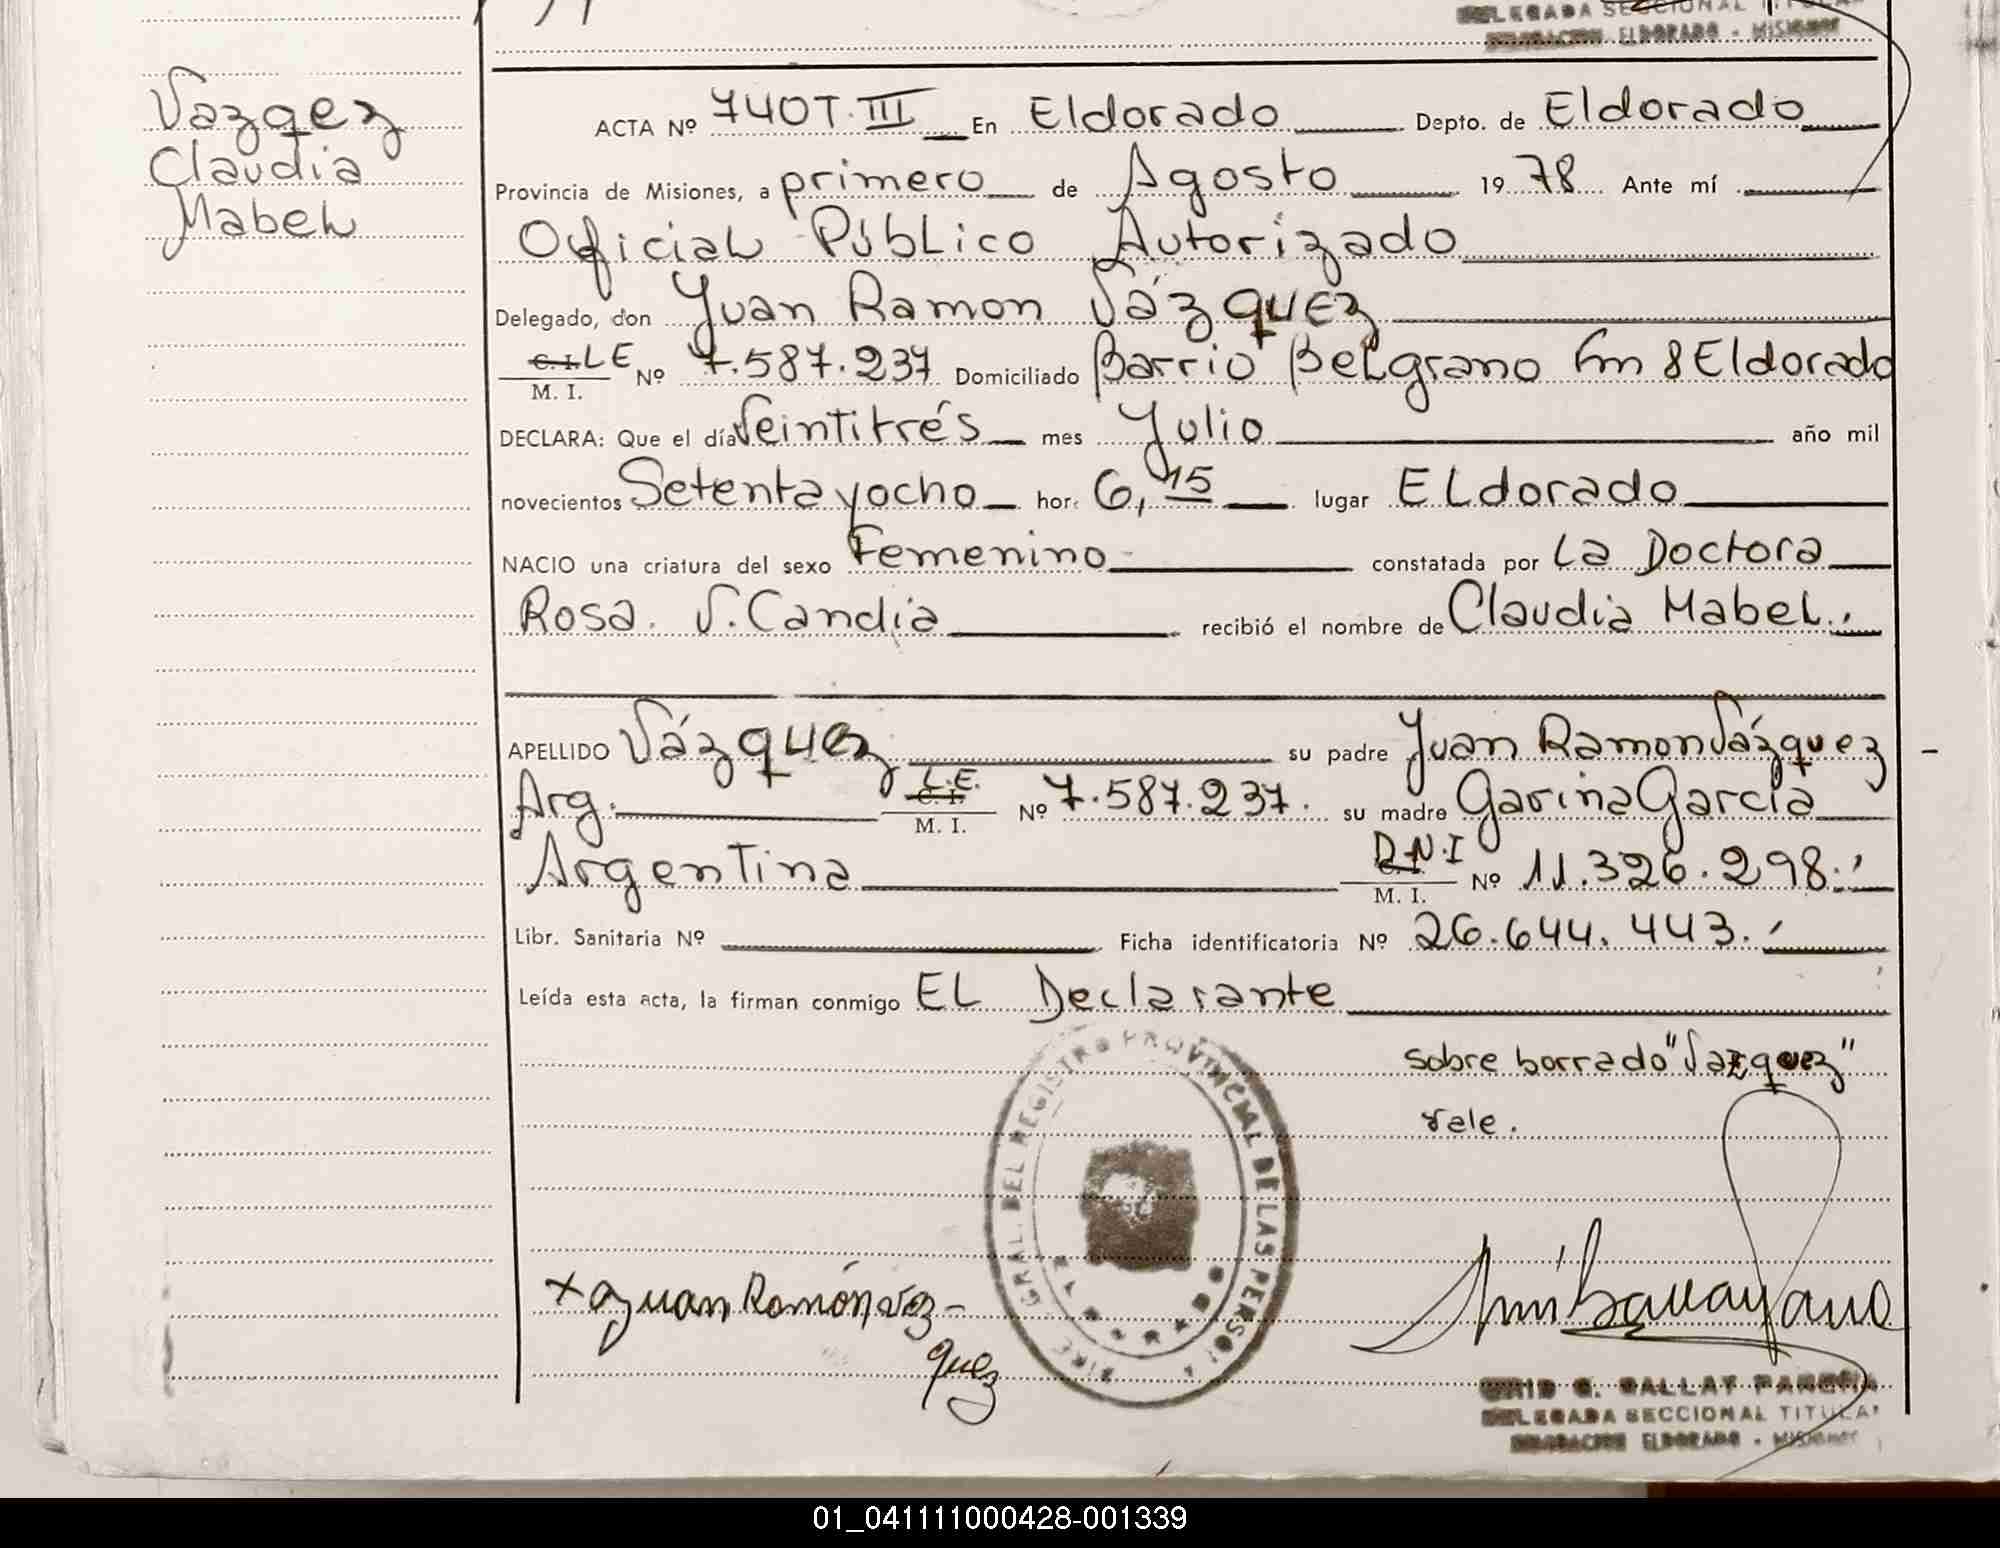 DELEGADA SECCIONAL TITULA
DELEGACION ELDORADO - MISIONES
Vazqez
Claudia
Mabel
ACTA Nº 740T.III En Eldorado Depto. de Eldorado
Provincia de Misiones, a primero de Agosto 1978 Ante mí
Oficial Público Autorizado
Delegado, don Juan Ramon Vázquez
C. I. LE
M. I. Nº 7.587.237 Domiciliado Barrio Belgrano Km 8 Eldorado
DECLARA: Que el día Veintitrés mes Julio año mil
novecientos Setenta y ocho hor. 6,15 lugar ELdorado
NACIO una criatura del sexo Femenino constatada por La Doctora
Rosa. V. Candia recibió el nombre de Claudia Mabel.
APELLIDO Vázquez su padre Juan Ramon Vázquez -
Arg. L.E. C. I. M. I. Nº 7.587.237. su madre Garina Garcia
Argentina D.N.I M. I. Nº 11.326.298.
Libr. Sanitaria Nº Ficha identificatoria Nº 26.644.443.
Leída esta acta, la firman conmigo EL Declarante
sobre borrado "Vazquez"
vale.
DIRE. GRAL. DEL REGISTRO PROVINCIAL DE LAS PERSO
x Juan Ramón Váz-
quez
G. GALLAY
DELEGADA SECCIONAL TITULA
DELEGACION ELDORADO - MISIONES
01_041111000428-001339